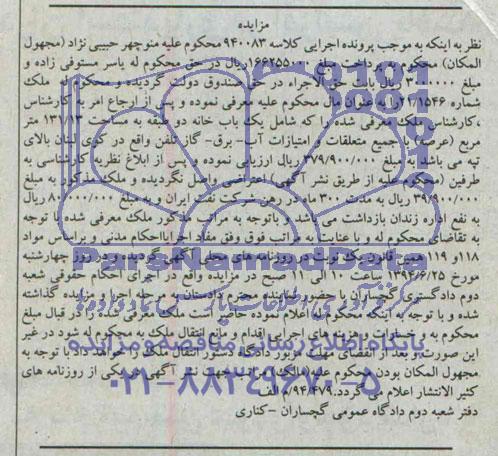 مزایده
نظر به اینکه به موجب پرونده اجرایی کلاسه ۹۴۰۰۸۳ محکوم علیه منوچهر حبیبی نژاد (مجهول
المکان) محکوم به پرداخت مبلغ ۱۶۶۲۵۵۰۰۰ ریال در حق محکوم له یاسر مستوفی زاده و
مبلغ ۳۰۰۰۰۰۰ ریال بابت حق الاجراء در حق صندوق دولت گردیده و محکوم له ملک
شماره ۲۱/۱۵۴۶ را به عنوان مال محکوم علیه معرفی نموده و پس از ارجاع امر به کارشناس
،کارشناس ملک معرفی شده را که شامل یک باب خانه دو طبقه به مساحت ۱۳۱/۱۳ متر
مربع (عرصه) با جمیع متعلقات و امتیازات آب- برق- گاز تلفن واقع در کوی لبنان بالای
تپه می باشد به مبلغ ۳۷۹/۹۰۰/۰۰۰ ریال ارزیابی نموده و پس از ابلاغ نظریه کارشناسی به
طرفین (محکوم علیه از طریق نشر آگهی) اعتراضی واصل نگردیده و ملک مذکور به مبلغ
۳۹/۹۰۰/۰۰۰ ریال به مدت ۳۰۰ ماه در رهن شرکت نفت ایران و به مبلغ ۸۰/۰۰۰/۰۰۰ ریال
به نفع اداره زندان بازداشت می باشد و باتوجه به مراتب مذکور ملک معرفی شده با توجه
به تقاضای محکوم له و با عنایت به مراتب فوق وفق مفاد اجرای احکام مدنی و براساس مواد
۱۱۸ و ۱۱۹ همین قانون یک نوبت در روزنامه های محلی آگهی گردیده و در روز چهارشنبه
مورخ ۱۳۹۴/۶/۲۵ ساعت ۱۰ الی ۱۱ صبح در مزایده واقع در اجرای احکام حقوقی شعبه
دوم دادگستری گچساران با حضور نماینده محترم دادستان به مرحله اجرا و مزایده گذاشته
شده و با توجه به اینکه محکوم له اعلام نموده حاضر است ملک معرفی شده را در قبال مبلغ
محکوم به و خسارات و هزینه های اجرایی اقدام و مانع انتقال ملک به محکوم له شود در غیر
این صورت و بعد از انقضای مهلت مزبور دادگاه دستور انتقال ملک را خواهد داد با توجه به
مجهول المکان بودن محکوم علیه(مالک) مراتب جهت نشر آگهی در یکی از روزنامه های
کثیر الانتشار اعلام می گردد.۹۴/۴۷۹/م الف
دفتر شعبه دوم دادگاه عمومی گچساران -کناری
ParsNamadData
پایگاه اطلاع رسانی مناقصه و مزایده
۰۲۱-۸۸۳۴۹۶۷۰-۵